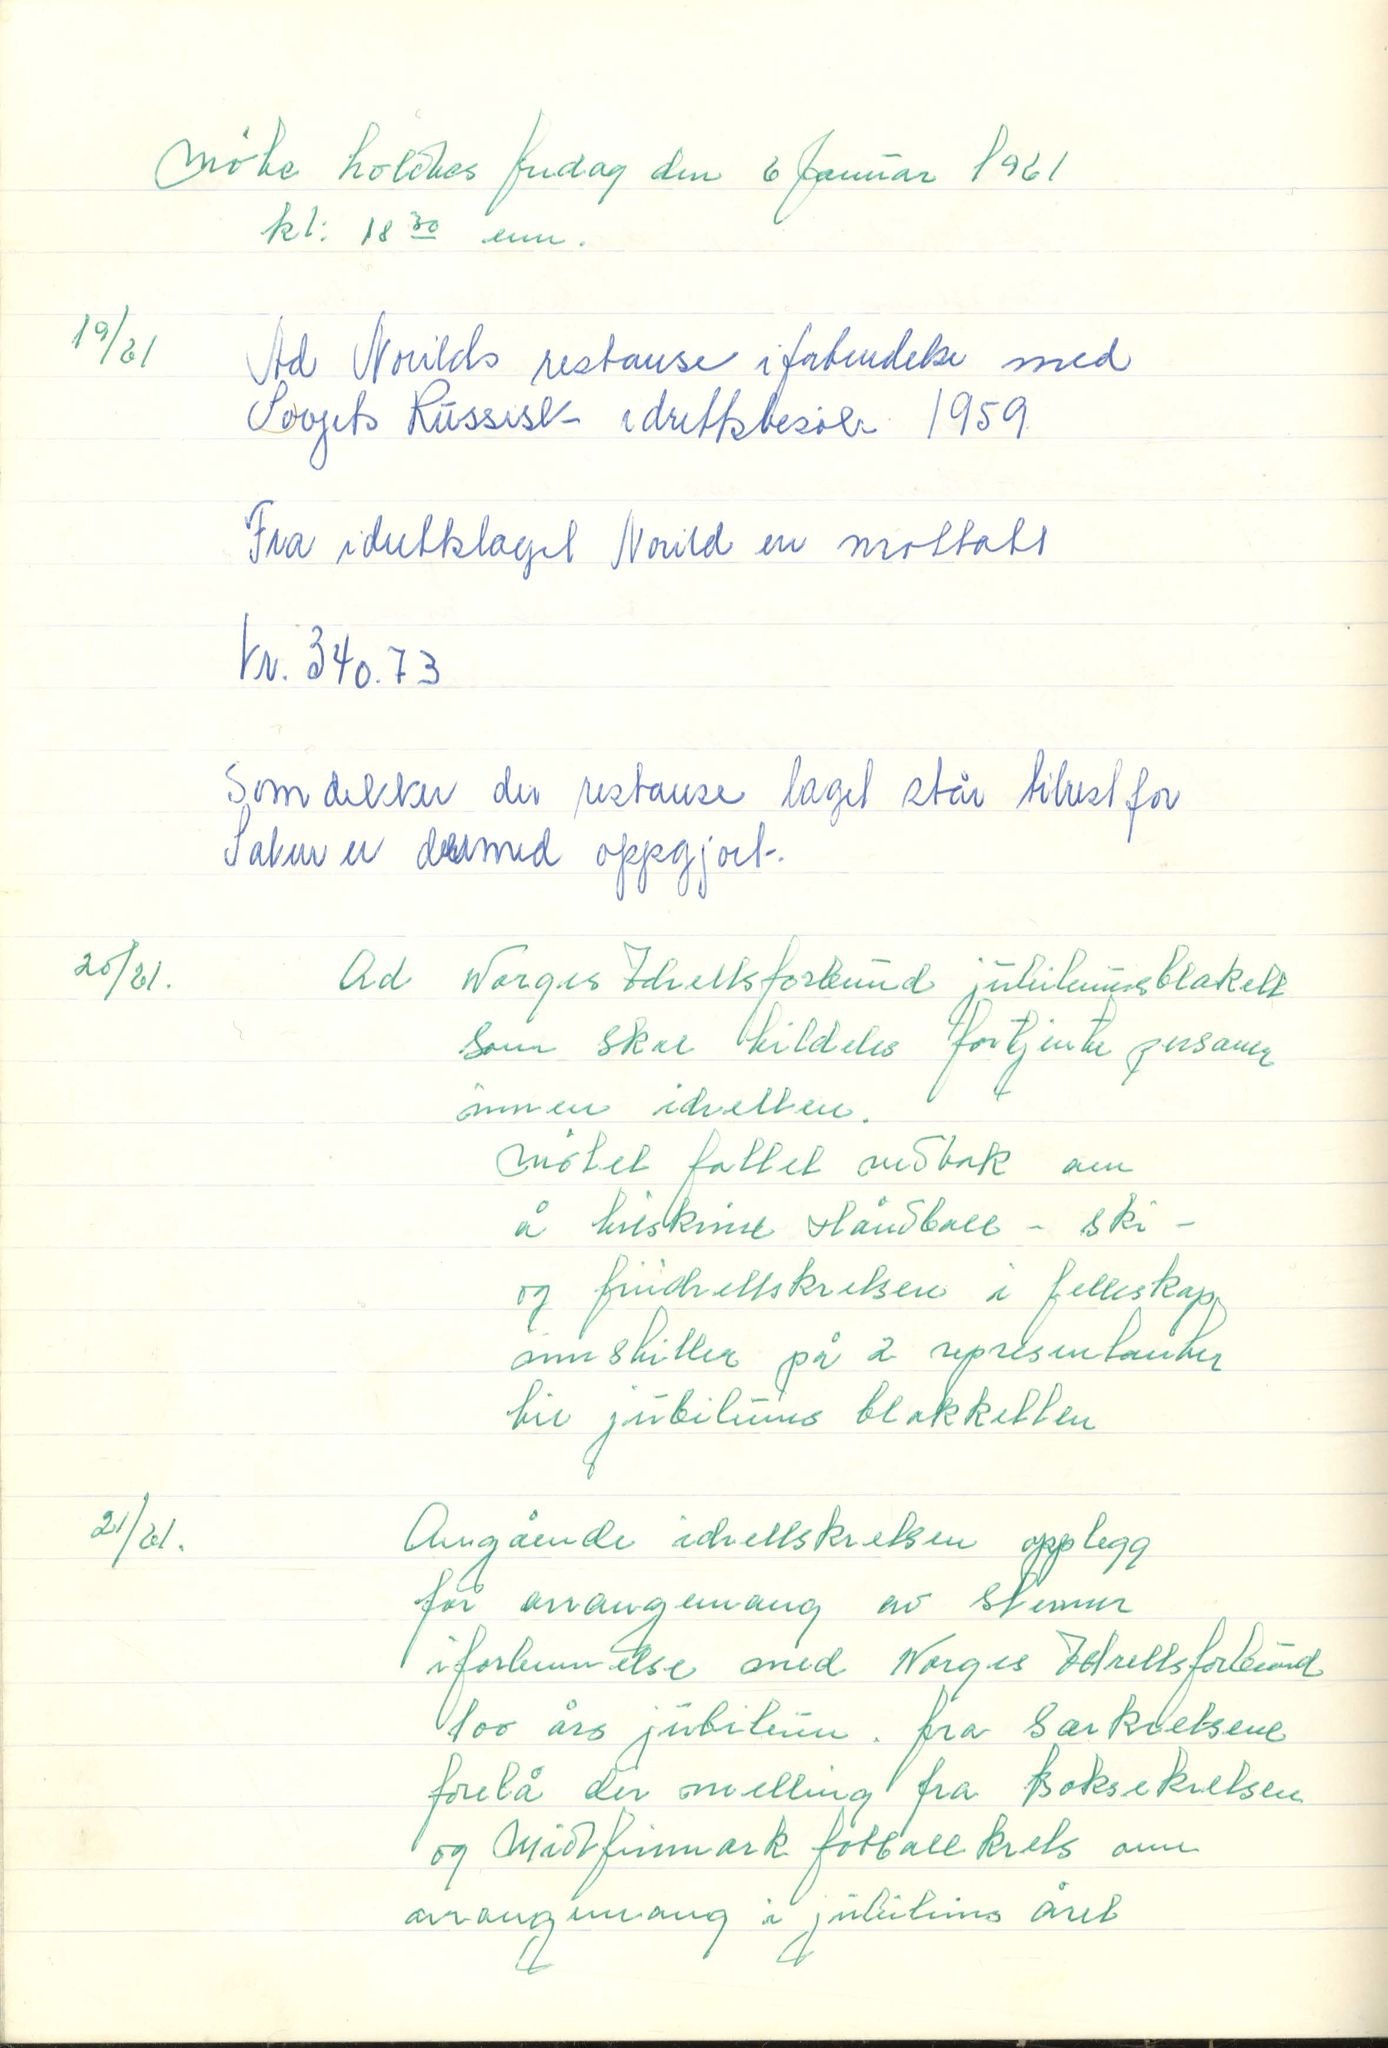 Möte holdtes fredag den 6 Januar 1961
kl: 18 30 em.
19/61
Ad Norilds restanse i forbindelse med
Sovjets Russisk idrettsbesøk 1959
Fra idrettslaget Norild er mottatt
kr. 340.73
Som dekker den restanse laget står tilrest for
Saken er dermed oppgjort.
20/61.
Ad Norges Idrettsforbund jubileumsblakett
som skal tildeles fortjente personer
innen idretten.
Mötet fattet vedtak om
å tilskrive Håndball - ski -
og friidrettskretsen i felleskap
innstiller på 2 representanter
til jubileums blakketten
21/61.
Angående idrettskretsen opplegg
for arrangemang av stevner
i forbinnelse med Norges Idrettsforbund
100 års jubileum. fra Særkretsene
forelå der melling fra Boksekretsen
og Midtfinnmark fotballkrets om
arrangemang i jubileums året